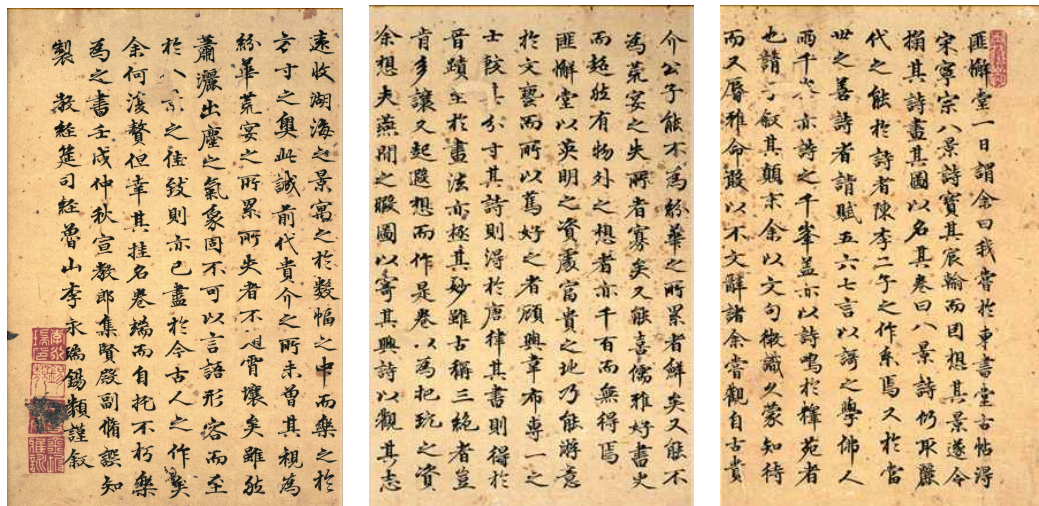 匪懈堂一日謂余曰我嘗於東書堂古帖得
宋寧宗八景詩寶其宸翰而因想其景遂令
搨其詩畫其圖以名其卷曰八景詩仍取麗
代之能於詩者陳李二子之作系焉又於當
世之善詩者請賦五六七言以謌之學佛人
雨千峯亦詩之千峯盖亦以詩鳴於釋苑者
也請子叙其顛末余以文句微久蒙知待
而又辱雅命敢以不文辭諸余嘗觀自古貴
介公子能不為紛華之所累者鮮矣又能不
為荒宴之失所者寡矣又能喜儒雅好書史
而超然有物外之想者亦千有而無得焉
匪懈堂以英明之資處富貴之地乃能游意
於文藝而所以篤好之者顧與韋布專一之
士較其分寸其詩則得於唐律其書則得於
晉蹟至於畫法亦極其妙雖古稱三絶者豈
肯多讓又起遐想而作是卷以為把玩之資
余想夫燕閒之暇圖以寄其興詩以觀其志
遠收湖海之景寓之於数幅之中而樂之於
方寸之奥此誠前代貴介之所未曾其視為
紛華荒宴之所累所失者不啻霄壤矣雖然
蕭灑出塵之氣象固不可以言語形容而至
於八景之佳致則亦已盡於今古人之作矣
余何復贅但幸其挂名卷端而自托不朽樂
為之書壬戌仲秋宣教郎集賢殿副脩譔知
製 教經筵司經曾山李永瑞錫類謹叙